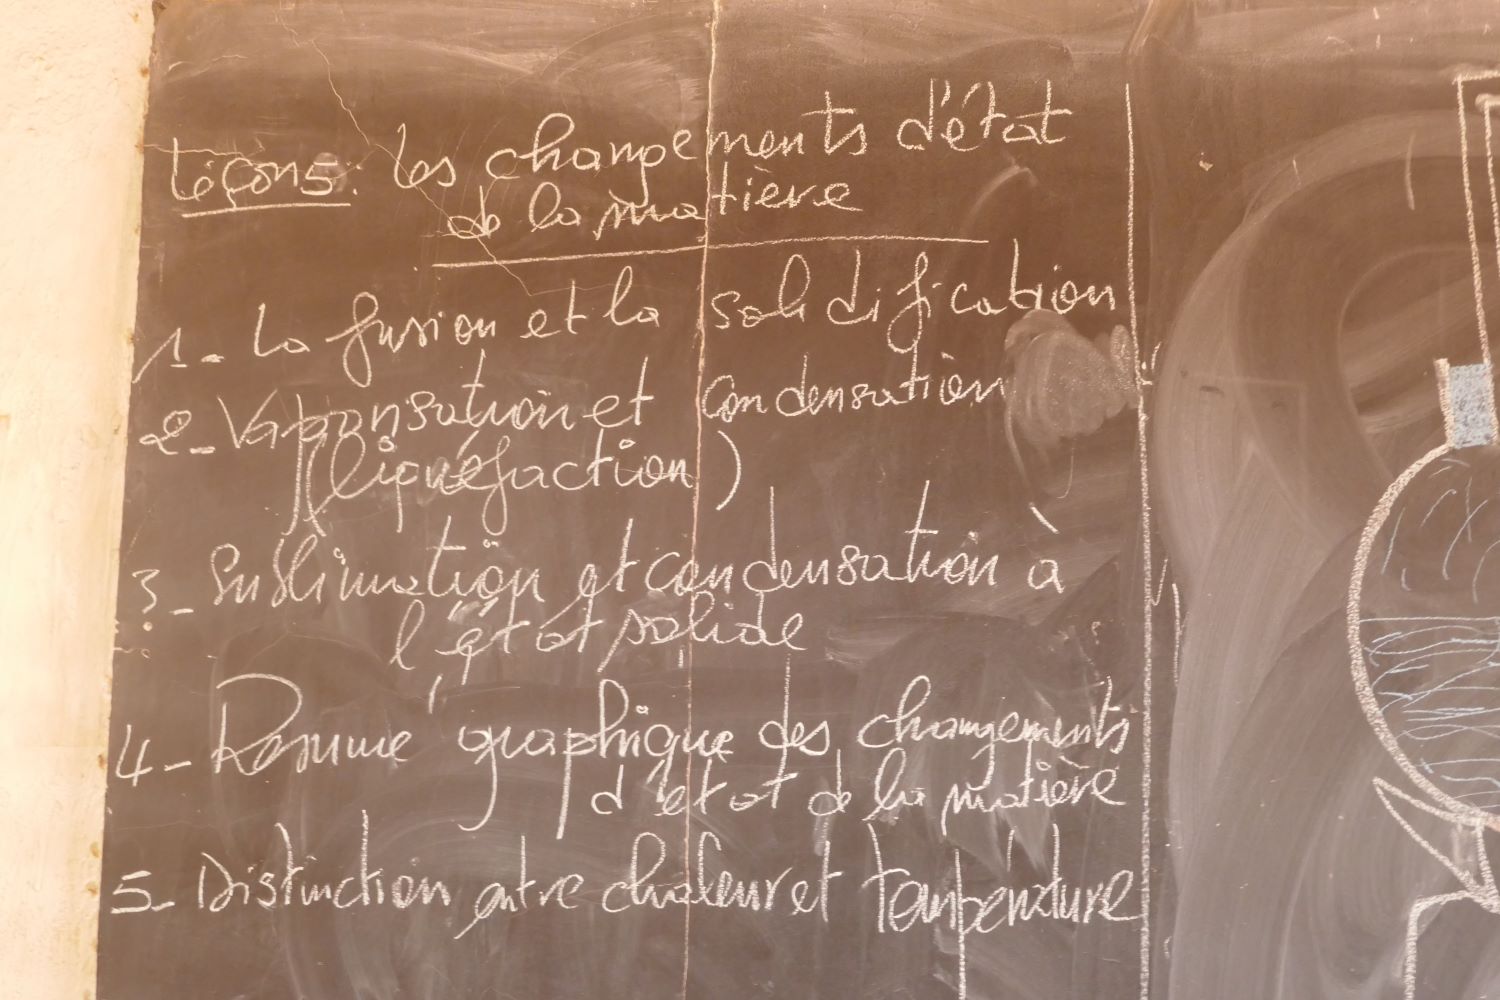 Leçon5: Les changements d'état
de la matière
1- La fusion et la solidification
2- Vaporisation et condensation
(liquéfaction)
3- Sublimation et condensation à
l'état solide
4- Résumé graphique des changements
d'état de la matière
5- Distinction entre chaleur et température